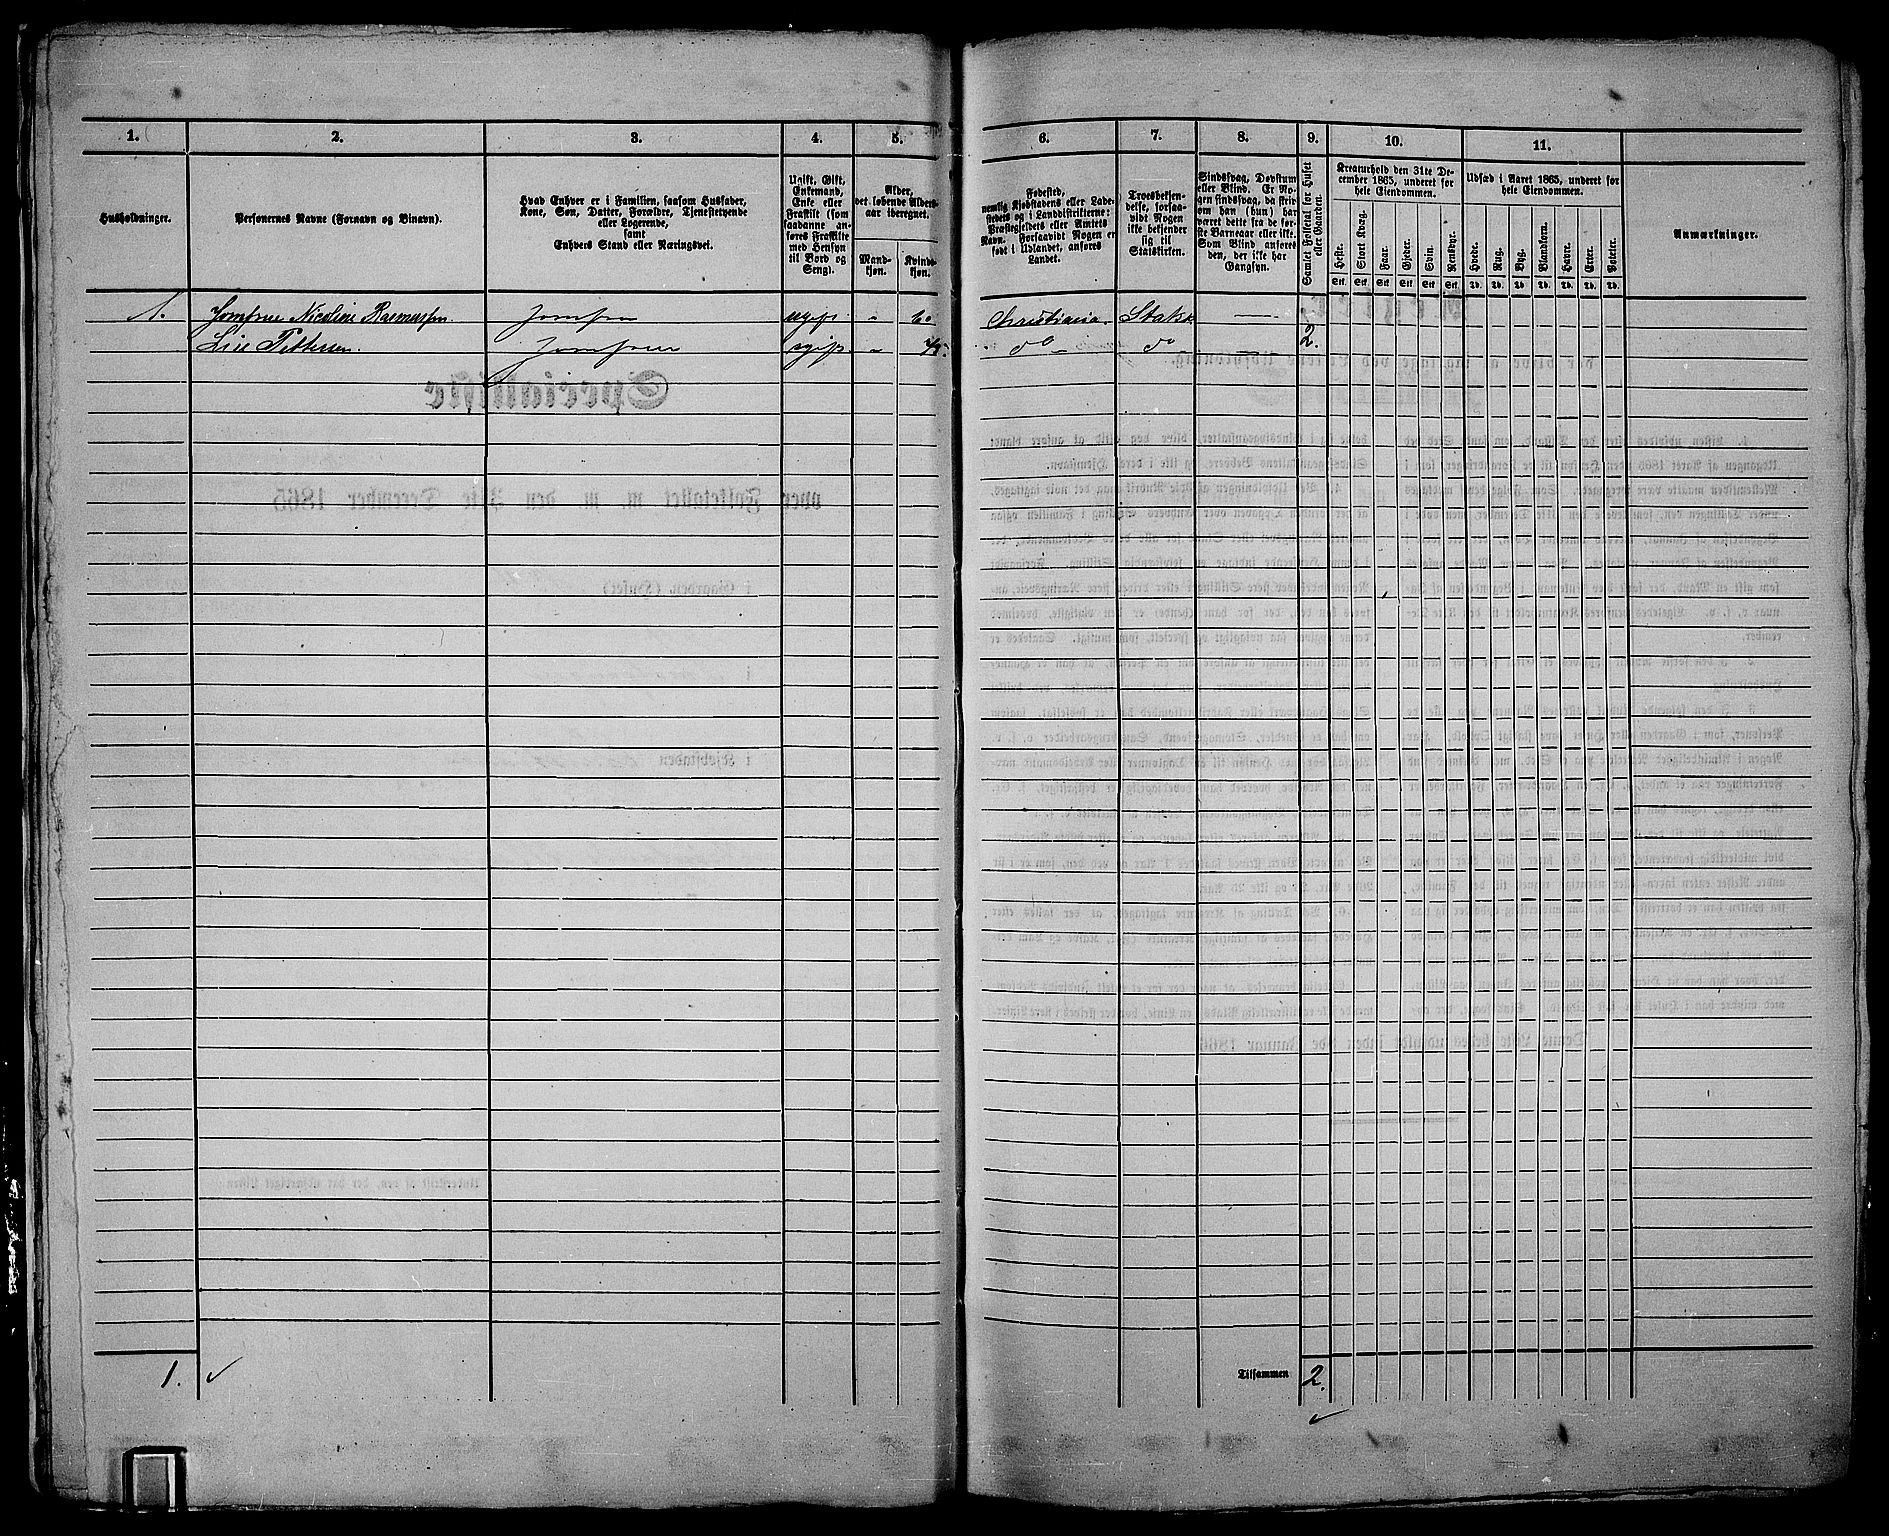 1. 2. 3. 4. 5. 6. 7. 8. 9. 10. 11.
Husholdninger.
Personernes Navne (Fornavn og Binavn).
Hvad Enhver er i Familien, saasom Husfader,
Kone, Søn, Datter, Forældre, Tjenestetyende
eller Logerende,
samt
Enhvers Stand eller Næringsvei.
Ugift, Gift,
Enkemand,
Enke eller
Fraskilt (som
saadanne an-
føres Fraskilte
med Hensyn
til Bord og
Seng).
Alder,
det løbende Alders-
aar iberegnet.
Mand-
kjøn.
Kvinde-
kjøn.
Fødested,
nemlig Kjøbstadens eller Lade-
stedets og i Landdistrikterne:
Præstegjeldets eller Amtets
Navn. Forsaavidt Nogen er
født i Udlandet, anføres
Landet.
Troesbekjen-
delse, forsaa-
vidt Nogen
ikke bekjender
sig til
Statskirken.
Sindssvag, Døvstum
eller Blind. Er No-
gen sindssvag, da skri-
ves om han (hun) har
været dette fra de før-
ste Barneaar eller ikke.
Som Blind anføres
den, der ikke har
Gangsyn.
Samlet Folketal for Huset
eller Gaarden.
Kreaturhold den 31te De-
cember 1865, underet for
hele Eiendommen.
Heste. Stort Kvæg. Faar. Gjeder. Svin. Rensdyr.
Stk. Stk. Stk. Stk. Stk. Stk.
Udsæd i Aaret 1865, underet for
hele Eiendommen.
Hvede. Rug. Byg. Blandkorn. Havre. Erter. Poteter.
Td. Td. Td. Td. Td. Td. Td.
Anmærkninger.
1. Jomfrue Nicoline Rasmussen. Jomfru ugift. „ 60 Christiania. Statsk —
Lise Pettersen. Jomfrue ugift. „ do do — 2.
1. ✓
Tilsammen 2.
✓